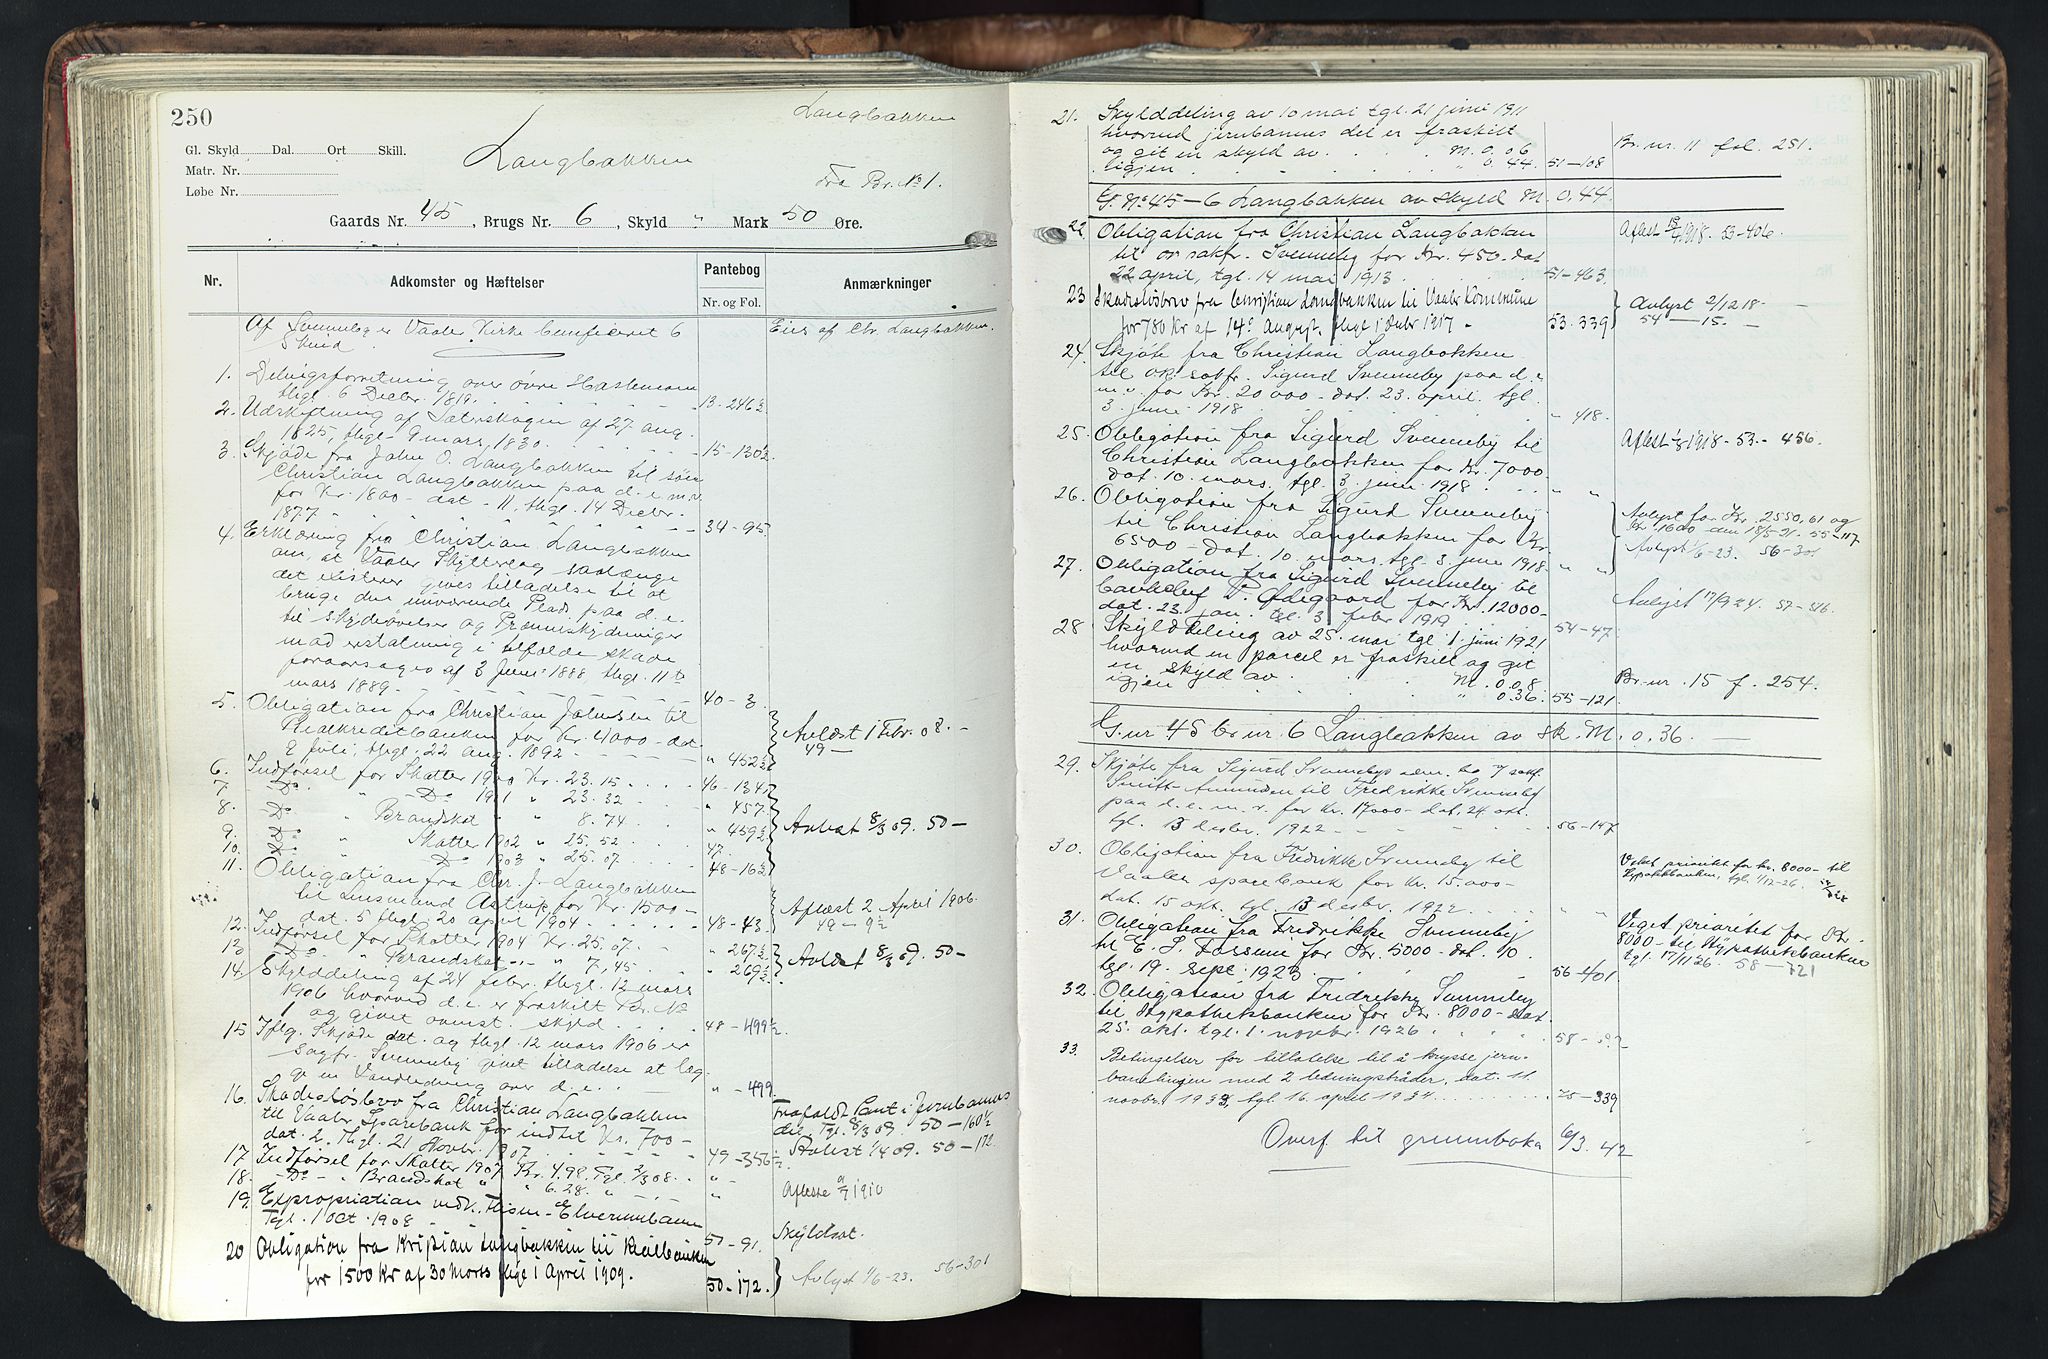 250
Langbakken
Gl. Skyld Dal. Ort Skill.
Matr. Nr.
Løbe Nr.
Langbakken
fra Br. No 1.
Gaards Nr. 45, Brugs Nr. 6, Skyld " Mark 50 Øre.
Nr. Adkomster og Hæftelser Pantebog Nr. og Fol. Anmærkninger
Af Svenneby er Vaaler Kirke beneficeret 6 Eies af Chr. Langbakken.
Skind
1. Delingsforretning over øvre Haslemoen
thgl. 6 Decbr. 1819. 13-246½
2. Udskiftning af Sæterskogen af 27 aug.
1825, thgl. 9 mars, 1830. 15-130½
3. Skjøde fra John O. Langbakken til søn
Christian Langbakken paa d. e. m. v.
for Kr. 1800- dat - 11, thgl. 14 Decbr.
1877 34-95
4. Erklæring fra Christian Langbakken
om, at Vaaler Skytterlag saalænge
det existerer gives tilladelse til at
bruge den nuværende Plads paa d. e.
til Skydeøvelser og Præmieskydninger
mod erstatning i tilfælde skade
foraarsages af 3 Juni 1888 thgl. 11te
mars 1889. 40-3
5. Obligation fra Christian Johnsen til
Realkreditbanken for Kr. 4000- dat.
2 Juli, thgl. 22 aug. 1892 " 452½ Avlæst 1 Febr. 08. 49-
6. Indførsel for Skatter 1900 Kr. 23.15 46-134½
7 - Do " - Do 1901 " 23.32 " 457.
8. - Do " Brandskat " " 8.74 " 459½ Avlæst 8/3 09. 50-
9. Do Skatter 1902 " 25.52 47.
10. Do " Do 1903 " 25.07 48-16½
11. Obligation fra Chr. J. Langbakken
til Lensmand Astrup for Kr. 1500-
dat. 5 thgl. 20 april 1904 48-43. Aflæst 2 April 1906. 49-9½
12. Indførsel for Skatter 1904 Kr. 25.07. " 267½
13 - Do " Brandskat " " 7,45. " 269½ Avlæst 8/3 09. 50-
14. Skylddeling af 24 febr. thgl. 12 mars
1906 hvorved d. e. er fraskilt Br. No
og givet ovenst. skyld 48-499½
15 Iflg. Skjøde dat. og thgl. 12 mars 1906 er
Sagfr. Svenneby givet tilladelse at læg-
ge en Vandledning over d. e. " -499.
16. Skadesløsbrev fra Christian Langbakken
til Vaaler Sparebank for indtil Kr. 700-
dat. 2. thgl. 21 Novbr. 1907 49-356½ Frafaldt Pant i Jernbanens
del. Tgl. 8/3 09. 50-160½
Avlæst 1/4 09. 50-172.
17. Indførsel for Skatter 1907 Kr. 4.98. Tgl. 2/3 08. " -
18. - Do - " Brandskat " " 6.28. " " Aflæste 1910
19. Expropriation vedk. Flisen-Elverumbanen
Tgl. 1 Oct. 1908 50-91. Skyldsat.
20 Obligation fra Kristian Langbakken til Realbanken
for 1500 Kr af 30 Marts thgl 1 April 1909. 50-172. Avlyst 1/6-23. 56-301
21. Skylddeling av 10 mai tgl. 21 juni 1911
hvorved jernbanens del er fraskilt
og git en skyld av. M. 0.06 Br. nr. 11 fol. 251.
igjen " 0.44. 51-108
G. No 45-6 Langbakken av Skyld M. 0,44.
22. Obligation fra Christian Langbakken Aflæst 1918. 53-406.
til or. sakfr. Svenneby for Kr. 450- dat.
22 april, tgl. 14 mai 1913 51-463.
23 Skadesløsbrev fra Christian Langbakken til Vaaler Kommune Avlyst 2/12 18-
for 780 Kr af 14 August. thgl 1 1917. 53.339 54-15.
24. Skjøte fra Christian Langbakken
til or. sakfr. Sigurd Svenneby paa d. e.
m. v. for Kr. 20000- dat. 23. april, tgl.
3. juni 1918 " 418.
25. Obligation fra Sigurd Svenneby til Aflæst 1918-53-456.
Christian Langbakken for Kr. 7000-
dat. 10. mars, tgl. 3. juni 1918. " "
26. Obligation fra Sigurd Svenneby Avlyst for Kr. 2550,61 og
til Christian Langbakken for Kr. Kr. 1600 den 18/5-21. 55-117
6500- dat. 10 mars tgl. 3. juni 1918. " " Avlyst 1/6-23. 56-301
27. Obligation fra Sigurd Svenneby til
bankchef Ødegaard for Kr. 12000- Avlyst 17/9 24. 57-316.
dat. 23. jan. tgl. 3 febr. 1919 54-47.
28 Skylddeling av 25. mai tgl. 1. juni 1921
hvorved en parcel er fraskilt og git
en skyld av M. 0.08. Br. nr. 15 f. 254.
igjen " 0.36. 55-121
G. nr 45 br. nr. 6 Langbakken av sk. M. 0.36.
29. Skjøte fra Sigurd Svennebys adm. bo v/ sakf.
Smitt-Amundsen til Fredrikke Svenneby
paa d. e. m. v. for Kr. 17000- dat. 24. okt.
tgl. 13 desbr. 1922 56-147
30. Obligation fra Fredrikke Svenneby til Veket prioritet for kr. 8000- til
Vaaler sparebank for Kr. 15.000- Hypotekbanken, tgl. 1/12-26.
dat. 15 okt. tgl. 13 desbr. 1922 " "
31. Obligation fra Fredrikke Svenneby Veget prioritet for Kr.
til E. S. Fossum for Kr. 5000- dat. 10. 8000- til Hypothekbanken
tgl. 19. sept. 1923 56-401. tgl. 17/11 26. 58-121
32. Obligation fra Fredrikke Svenneby
til Hypothekbanken for Kr. 8000- dat.
25. okt. tgl. 1. novebr. 1926 58-
33. Betingelser for tillatelse til å krysse jern-
banelinjen med 2 ledningstråder, dat. 11.
novbr. 1933, tgl. 16. april 1934 75-339
Overf. til grunnboka 6/3. 42